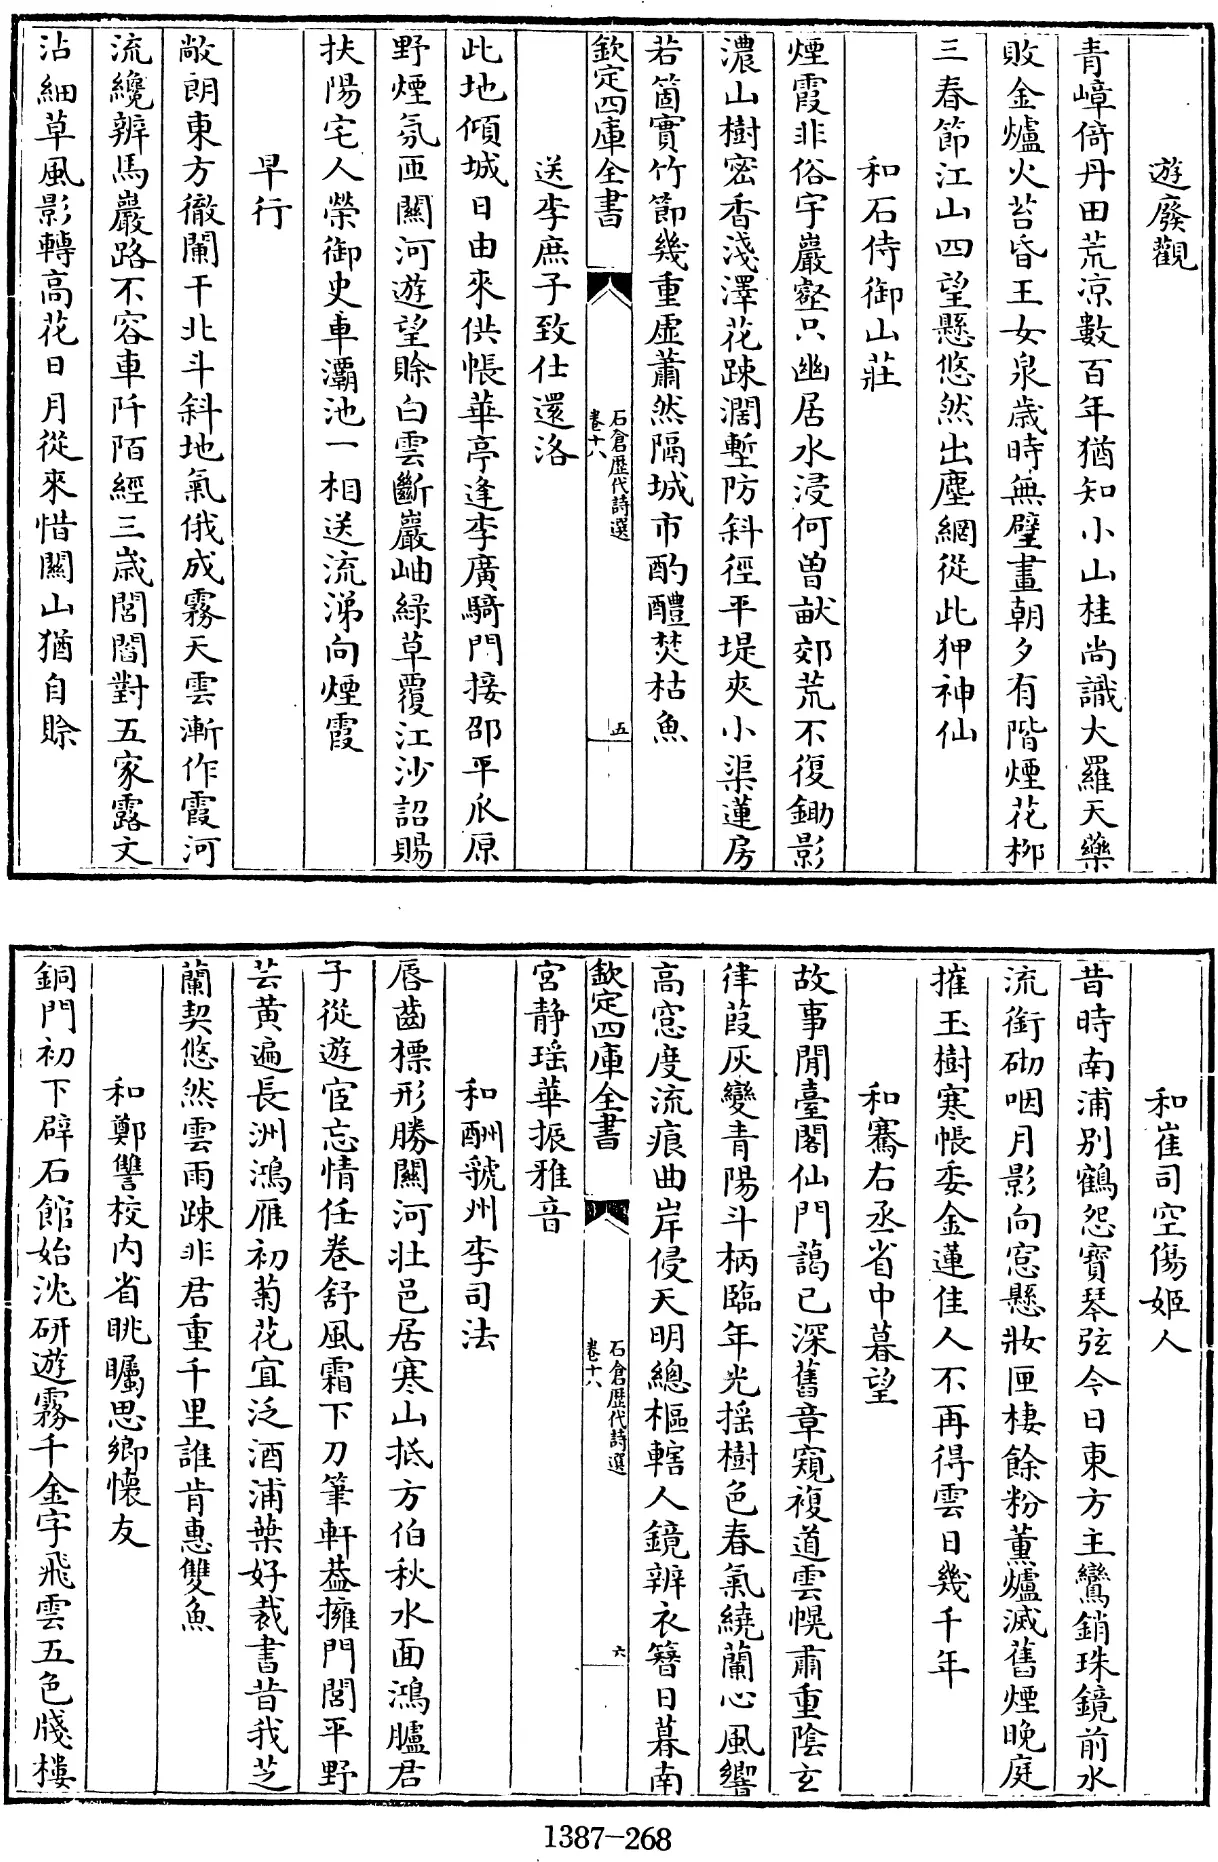 遊廢觀
青嶂倚丹田荒涼數百年猶知小山桂尚識大羅天藥
敗金爐火苔昏王女泉歲時無壁畫朝夕有階煙花柳
三春節江山四望懸悠然出塵網從此狎神仙
和石侍御山莊
煙霞非俗宇巖壑只幽居水浸何曽畎郊荒不復鋤影
濃山樹密香淺澤花踈濶塹防斜徑平堤夾小渠蓮房
若箇實竹節幾重虛蕭然隔城市酌醴焚枯魚
欽定四庫全書
石倉歷代詩選
卷十八
五
送李庶子致仕還洛
此地傾城日由來供帳華亭逢李廣騎門接邵平𤓰原
野煙氛匝關河遊望賒白雲斷巖岫綠草覆江沙詔賜
扶陽宅人榮御史車灞池一相送流涕向煙霞
早行
敞朗東方徹闌干北斗斜地氣俄成霧天雲漸作霞河
流纔辨馬巖路不容車阡陌經三歲閭閻對五家露文
沾細草風影轉高花日月從來惜關山猶自賒
和崔司空傷姬人
昔時南浦别鶴怨寳琴弦今日東方主鸞銷珠鏡前水
流銜砌咽月影向窓懸妝匣棲餘粉薰爐滅舊煙晚庭
摧玉樹寒帳委金蓮佳人不再得雲日幾千年
和騫右丞省中暮望
故事閒臺閣仙門藹已深舊章窺複道雲幌肅重陰玄
律葭灰變青陽斗柄臨年光摇樹色春氣繞蘭心風響
高窓度流痕曲岸侵天明總樞轄人鏡辨衣簪日暮南
欽定四庫全書
石倉歷代詩選
卷十八
六
宮静瑶華振雅音
和酬虢州李司法
唇齒標形勝關河壯邑居寒山抵方伯秋水面鴻臚君
子從遊宦忘情任卷舒風霜下刀筆軒葢擁門閭平野
芸黄遍長洲鴻雁初菊花宜泛酒浦葉好裁書昔我芝
蘭契悠然雲雨踈非君重千里誰肯惠雙魚
和鄭讐校内省眺矚思鄉懷友
銅門初下辟石館始沈研遊霧千金字飛雲五色牋樓
1387-268